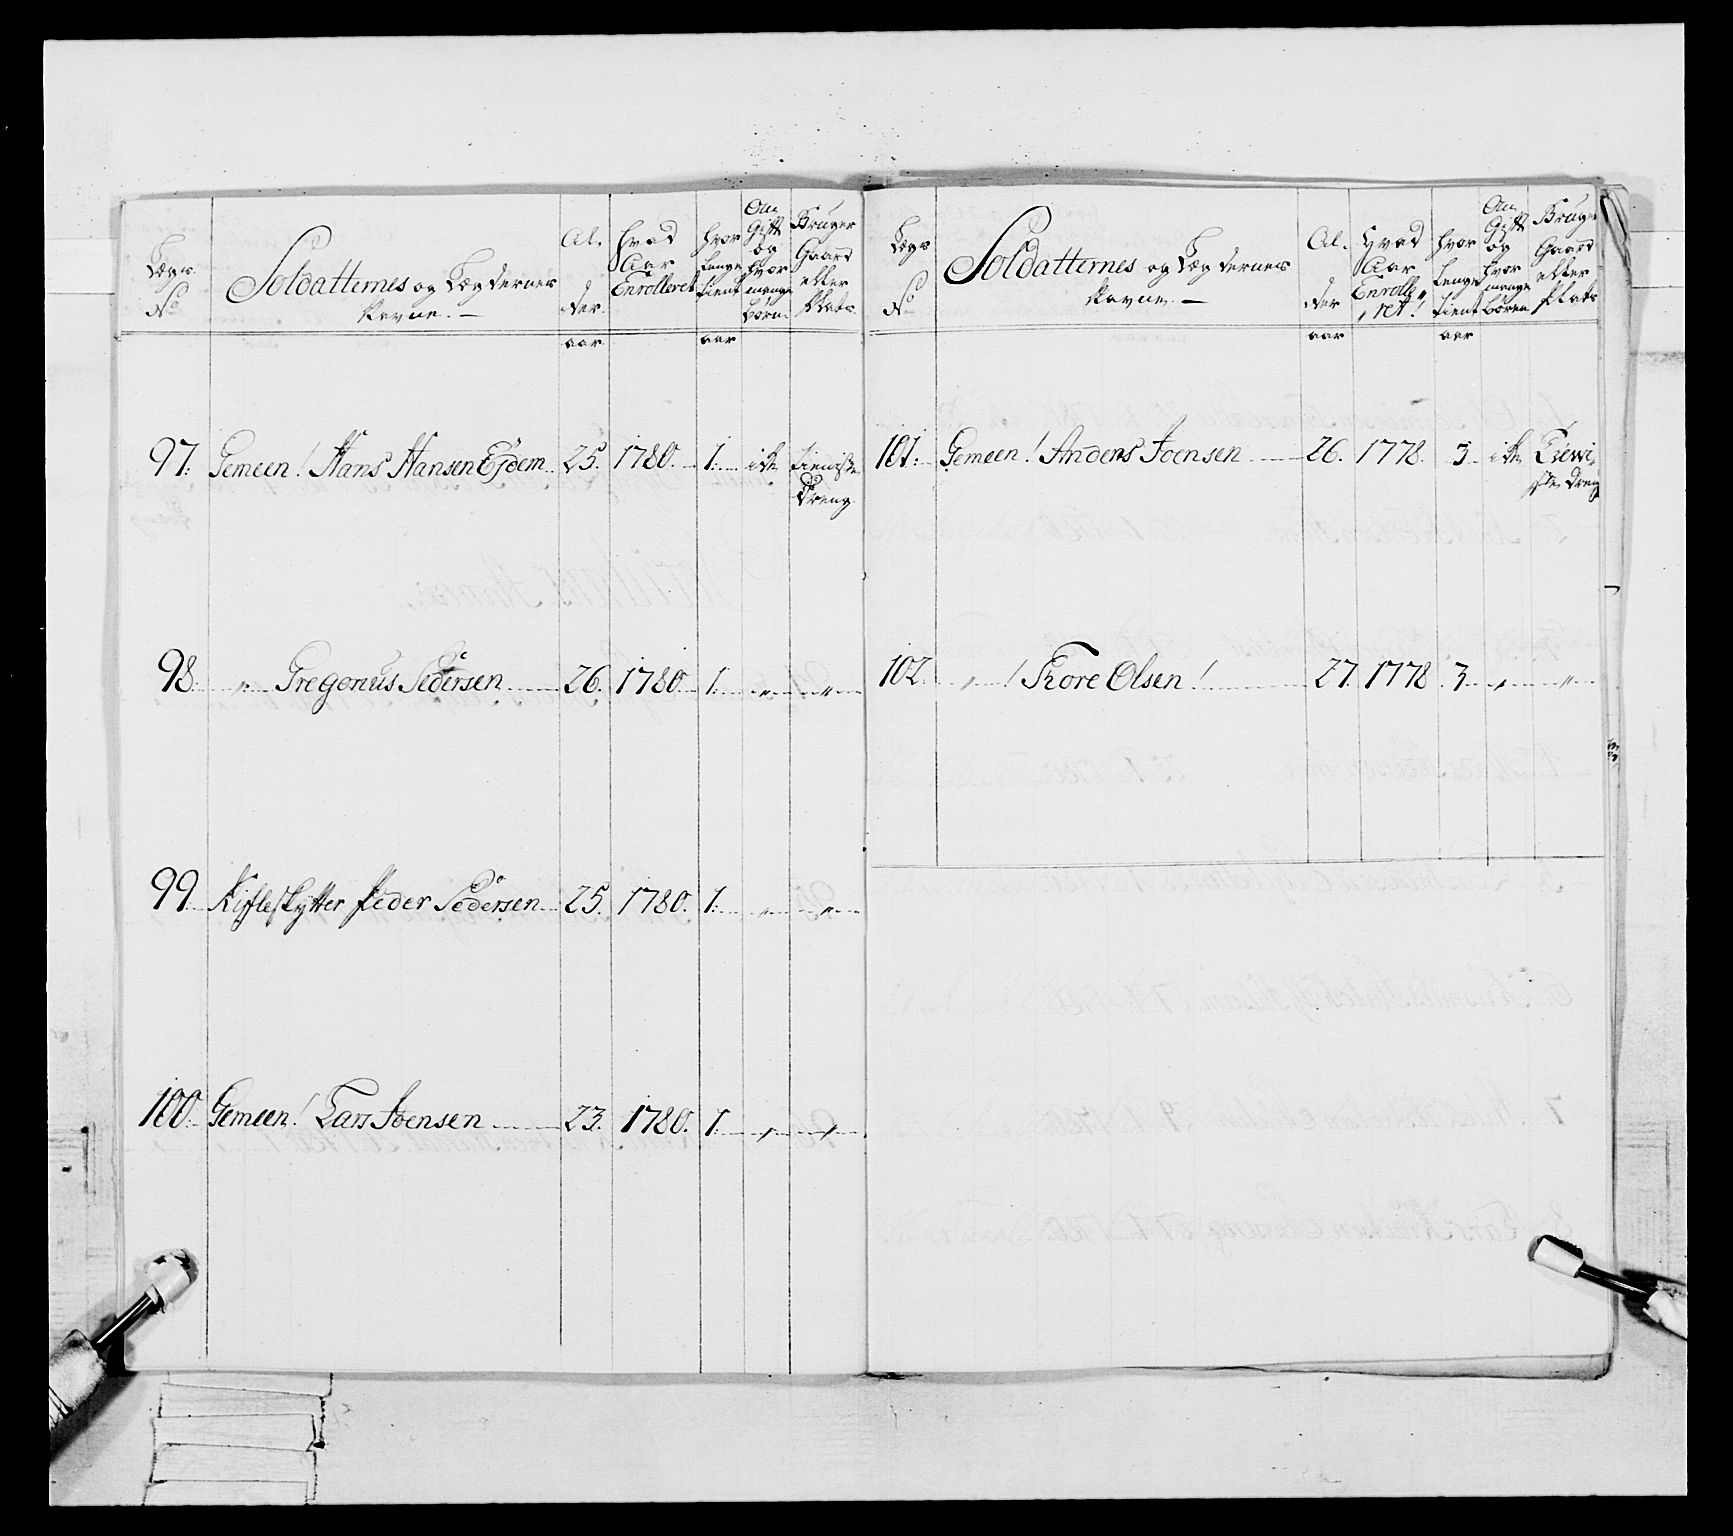 Lægs No
Soldatternes og Lægdernes Navne. —
Al. der
Hvad Aar Enrolleret
hvor Lenge tient
Om Gift og hvor mange børn
Bruger Gaard eller Plats
aar aar
97. Gemeen! Hans Hansen Ejdem 25. 1780. 1. icke tieniste
Dreng
98. " Gregorius Pedersen 26. 1780 1. " "
99 Rifleskytter Peder Pedersen 25. 1780. 1. " "
100. Gemeen! Lars Joensen 23. 1780. 1. " "
Lægs No
Soldatternes og Lægdernes Navne. —
Al. der
Hvad Aar Enrolle, ret!
hvor Lenge tient
Om Gift og hvor mange børn
Bruger Gaard eller Plats
aar aar
101. Gemeen! Anders Joensen 26. 1778. 3. icke Tieni
ste Dreng
102. " ! Tore Olsen! 27. 1778 3. " "